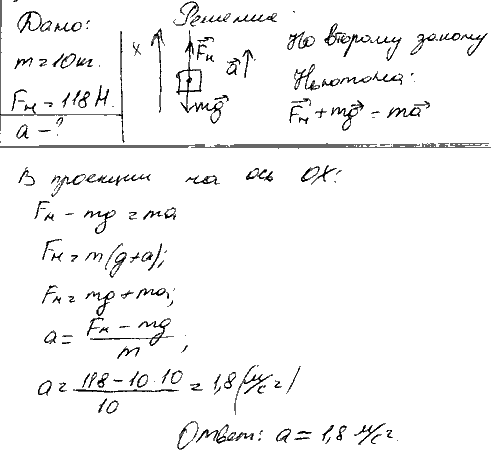 Дано:
m = 10 кг.
Fн = 118 Н.
a - ?
Решение:
x
F⃗н
a⃗
mg⃗
По второму закону
Ньютона:
F⃗н + mg⃗ = ma⃗
В проекции на ось OX:
Fн - mg = ma
Fн = m(g+a);
Fн = mg + ma;
a = (Fн - mg)/m;
a = (118 - 10·10)/10 = 1,8 (м/с²)
Ответ: a = 1,8 м/с².